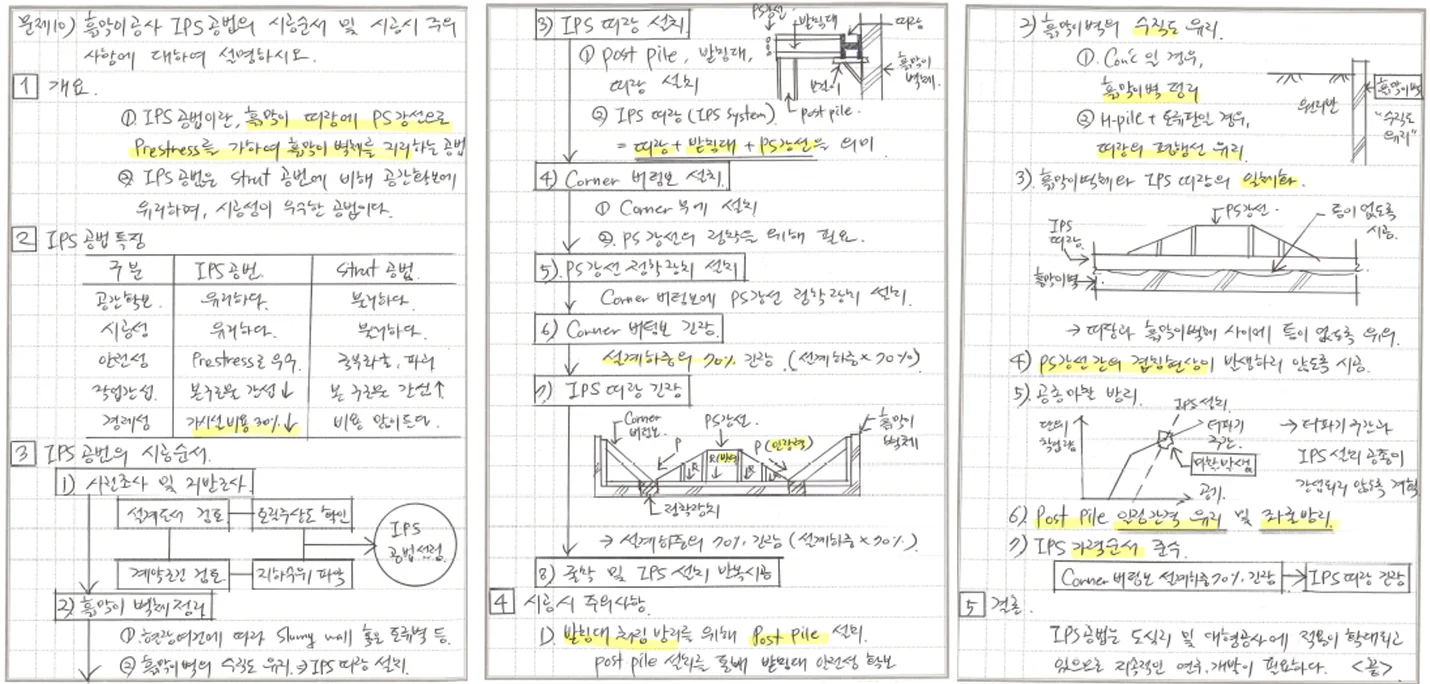 문제10) 흙막이공사 IPS공법의 시공순서 및 시공시 주의
사항에 대하여 설명하시오.
1 개요
① IPS공법이란, 흙막이 띠장에 PS강선으로
Prestress를 가하여 흙막이 벽체를 지지하는 공법
② IPS공법은 strut 공법에 비해 공간확보에
유리하며, 시공성이 우수한 공법이다.
2 IPS공법 특징
구분 IPS공법 strut 공법
공간확보 유리하다. 불리하다.
시공성 유리하다. 불리하다.
안전성 Prestress로 우수 국부좌굴, 파괴
작업간섭 본구조물 간섭↓ 본 구조물 간섭↑
경제성 가시설비용 30%↓ 비용 많이든다.
3 IPS공법의 시공순서
1) 사전조사 및 지반조사
설계도서 검토 토질주상도 확인
IPS
공법선정
계약조건 검토 지하수위 파악
2) 흙막이 벽체정리
① 현장여건에 따라 slurry wall 혹은 토류벽 등.
② 흙막이벽의 수직도 유지 → IPS 띠장 설치
3) IPS 띠장 설치
① post pile, 받침대,
띠장 설치
② IPS 띠장 (IPS system)
= 띠장 + 받침대 + PS강선을 의미
PS강선 받침대 띠장
흙막이
벽체
보걸이
post pile.
4) Corner 버팀보 설치
① Corner부에 설치
② PS강선의 정착을 위해 필요.
5) PS강선 정착장치 설치
Corner 버팀보에 PS강선 정착장치 설치.
6) Corner 버팀보 긴장
설계하중의 70% 긴장 (설계하중×70%)
7) IPS 띠장 긴장
Corner
버팀보
PS강선
P P (인장력)
R R(반력) R
흙막이
벽체
정착장치
→ 설계하중의 70% 긴장 (설계하중×70%)
8) 굴착 및 IPS 설치 반복시공
4 시공시 주의사항
1) 받침대 처짐 방지를 위해 Post pile 설치.
post pile 설치를 통해 받침대 안전성 확보
2) 흙막이벽의 수직도 유지.
① Con'c 일 경우,
흙막이벽 정리
② H-pile + 토류판일 경우,
띠장의 평행선 유지.
원지반
흙막이벽
"수직도
유지"
3) 흙막이벽체와 IPS 띠장의 일체화.
PS강선
틈이 없도록
시공.
IPS
띠장
흙막이벽
→ 띠장과 흙막이벽체 사이에 틈이 없도록 유의
4) PS강선간의 겹침현상이 발생하지 않도록 시공.
5) 공종마찰 방지.
IPS 설치
터파기
구간
마찰발생
공기
→ 터파기 구간과
IPS 설치 공종이
간섭되지 않도록 계획
6) Post Pile 일정간격 유지 및 좌굴방지.
7) IPS 가력순서 준수.
Corner 버팀보 설계하중70% 긴장 → IPS 띠장 긴장
5 결론.
IPS공법은 도심지 및 대형공사에 적용이 확대되고
있으므로 지속적인 연구, 개발이 필요하다. <끝>